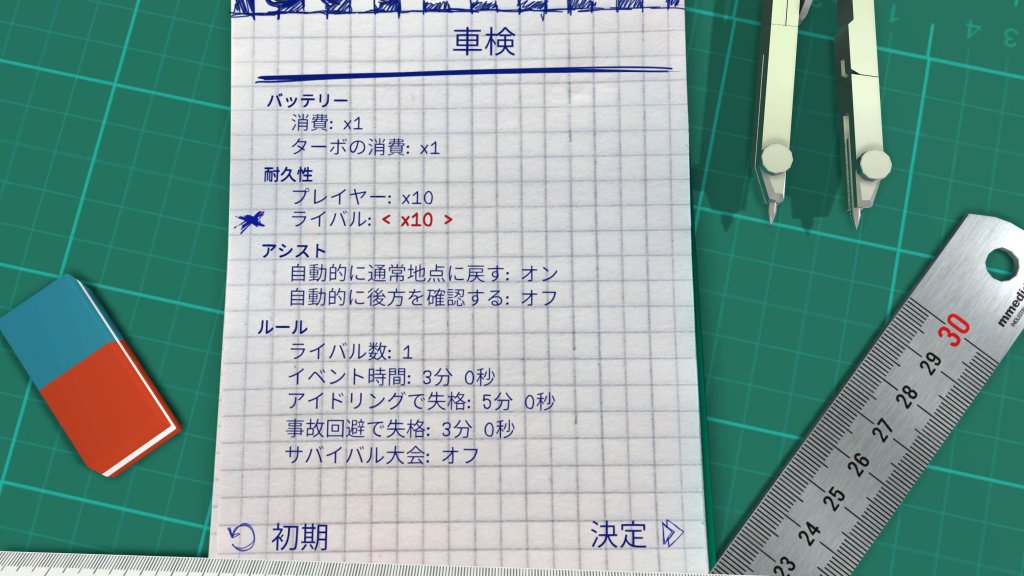 車検
バッテリー
消費: x1
ターボの消費: x1
耐久性
プレイヤー: x10
ライバル: < x10 >
アシスト
自動的に通常地点に戻す: オン
自動的に後方を確認する: オフ
ルール
ライバル数: 1
イベント時間: 3分 0秒
アイドリングで失格: 5分 0秒
事故回避で失格: 3分 0秒
サバイバル大会: オフ
初期
決定
30
29
28
27
26
25
24
23
1
4
3